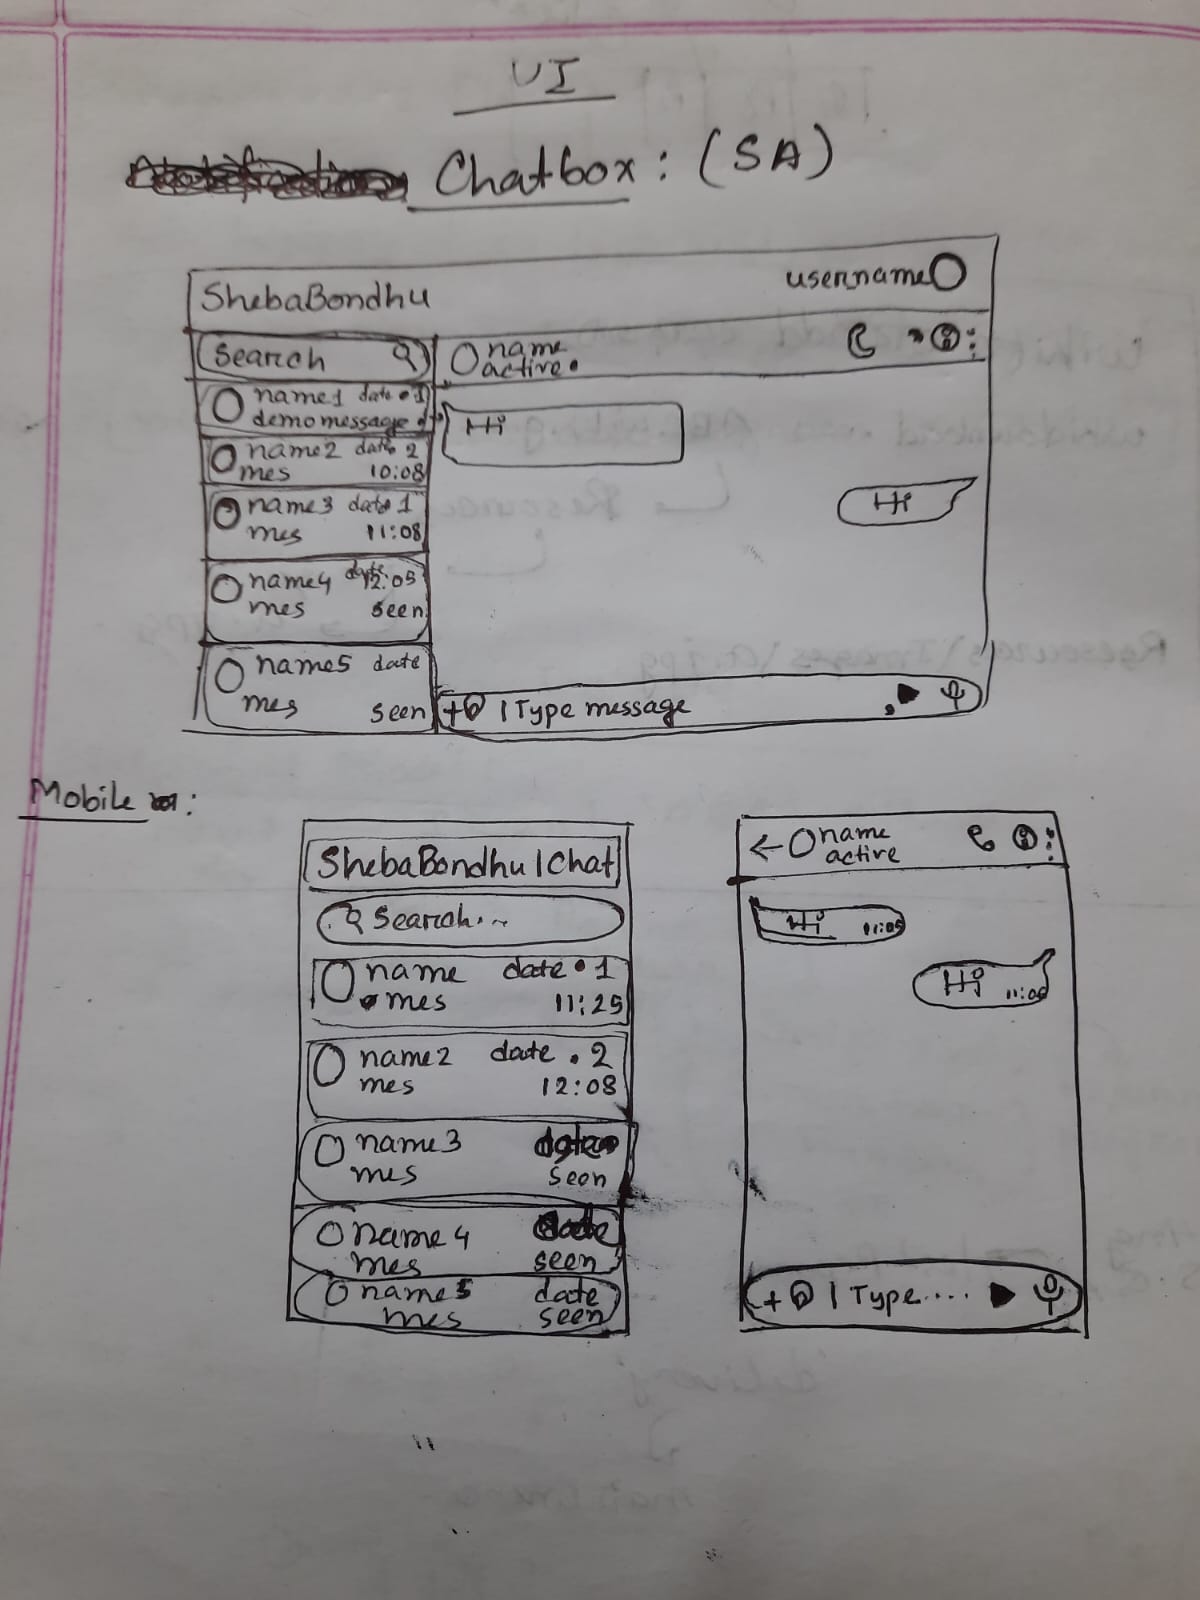 UI
Chatbox: (SA)
ShebaBondhu
username
Search
name
active
name1 date 1
demo message
Hi
name2 date 2
mes 10:08
Hi
name3 date 1
mes 11:08
name4 date 12:05
mes seen
name5 date
mes seen
+ | Type message
Mobile :
ShebaBondhu | Chat
Search...
name date 1
mes 11:25
name2 date . 2
mes 12:08
name3 date
mes seen
name4 date
mes seen
name5 date
mes seen
← name
active
Hi 11:05
Hi 11:06
+ | Type....